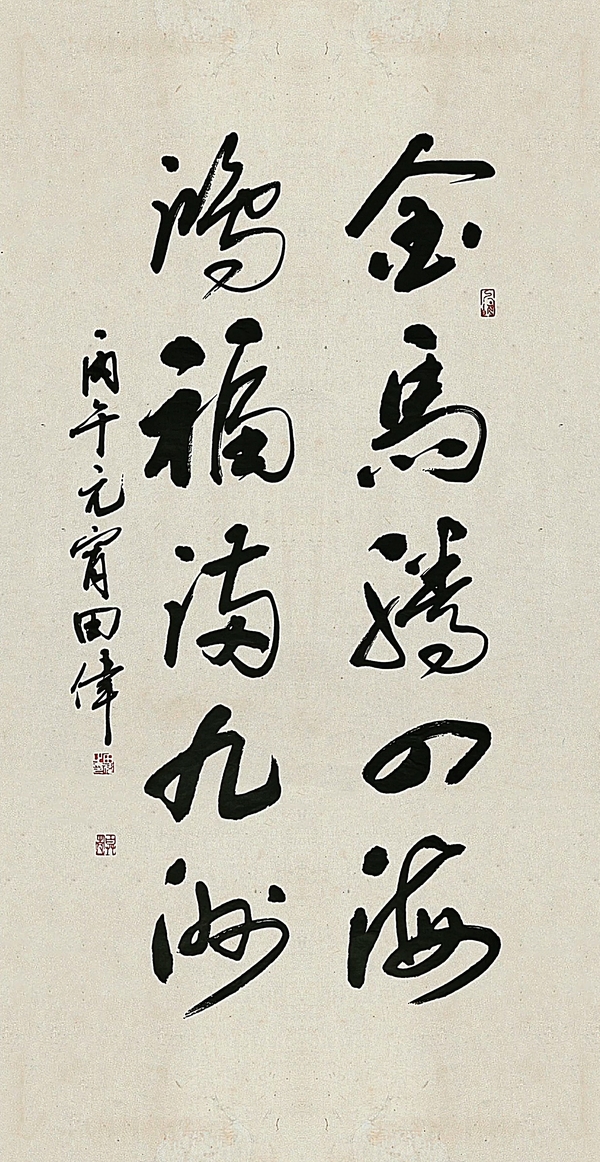 金馬騰四海
鴻福滿九洲
丙午元宵田偉